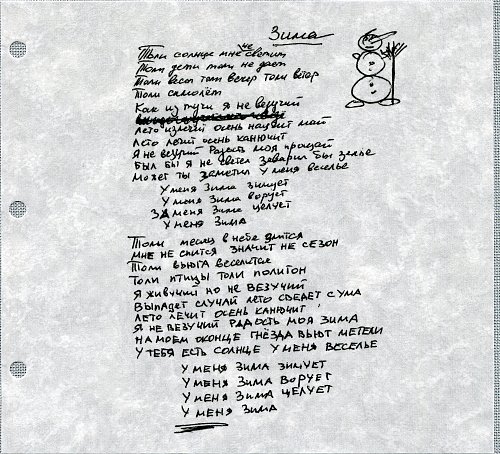 Зима
Толи солнце мне не светит
Толи дети толи не дает
Толи весь там вечер толи ветер
Толи самолёт
Как из тучи я не везучий
Лето излечит осень научит май
Лето лечит осень канючит
Я не везучий Радость моя прощай
Был бы я не светел заварил бы зелье
Может ты заметил У меня веселье
У меня Зима зимует
У меня Зима ворует
За меня Зима целует
У меня Зима
Толи месяц в небе длится
Мне не спится значит не сезон
Толи вьюга веселится
Толи птицы толи полигон
Я живучий но не везучий
Выпадет случай лето сведет с ума
Лето лечит осень канючит
Я не везучий радость моя зима
На моем оконце гнёзда вьют метели
У тебя есть солнце у меня веселье
У меня зима зимует
У меня Зима ворует
У меня Зима целует
У меня Зима